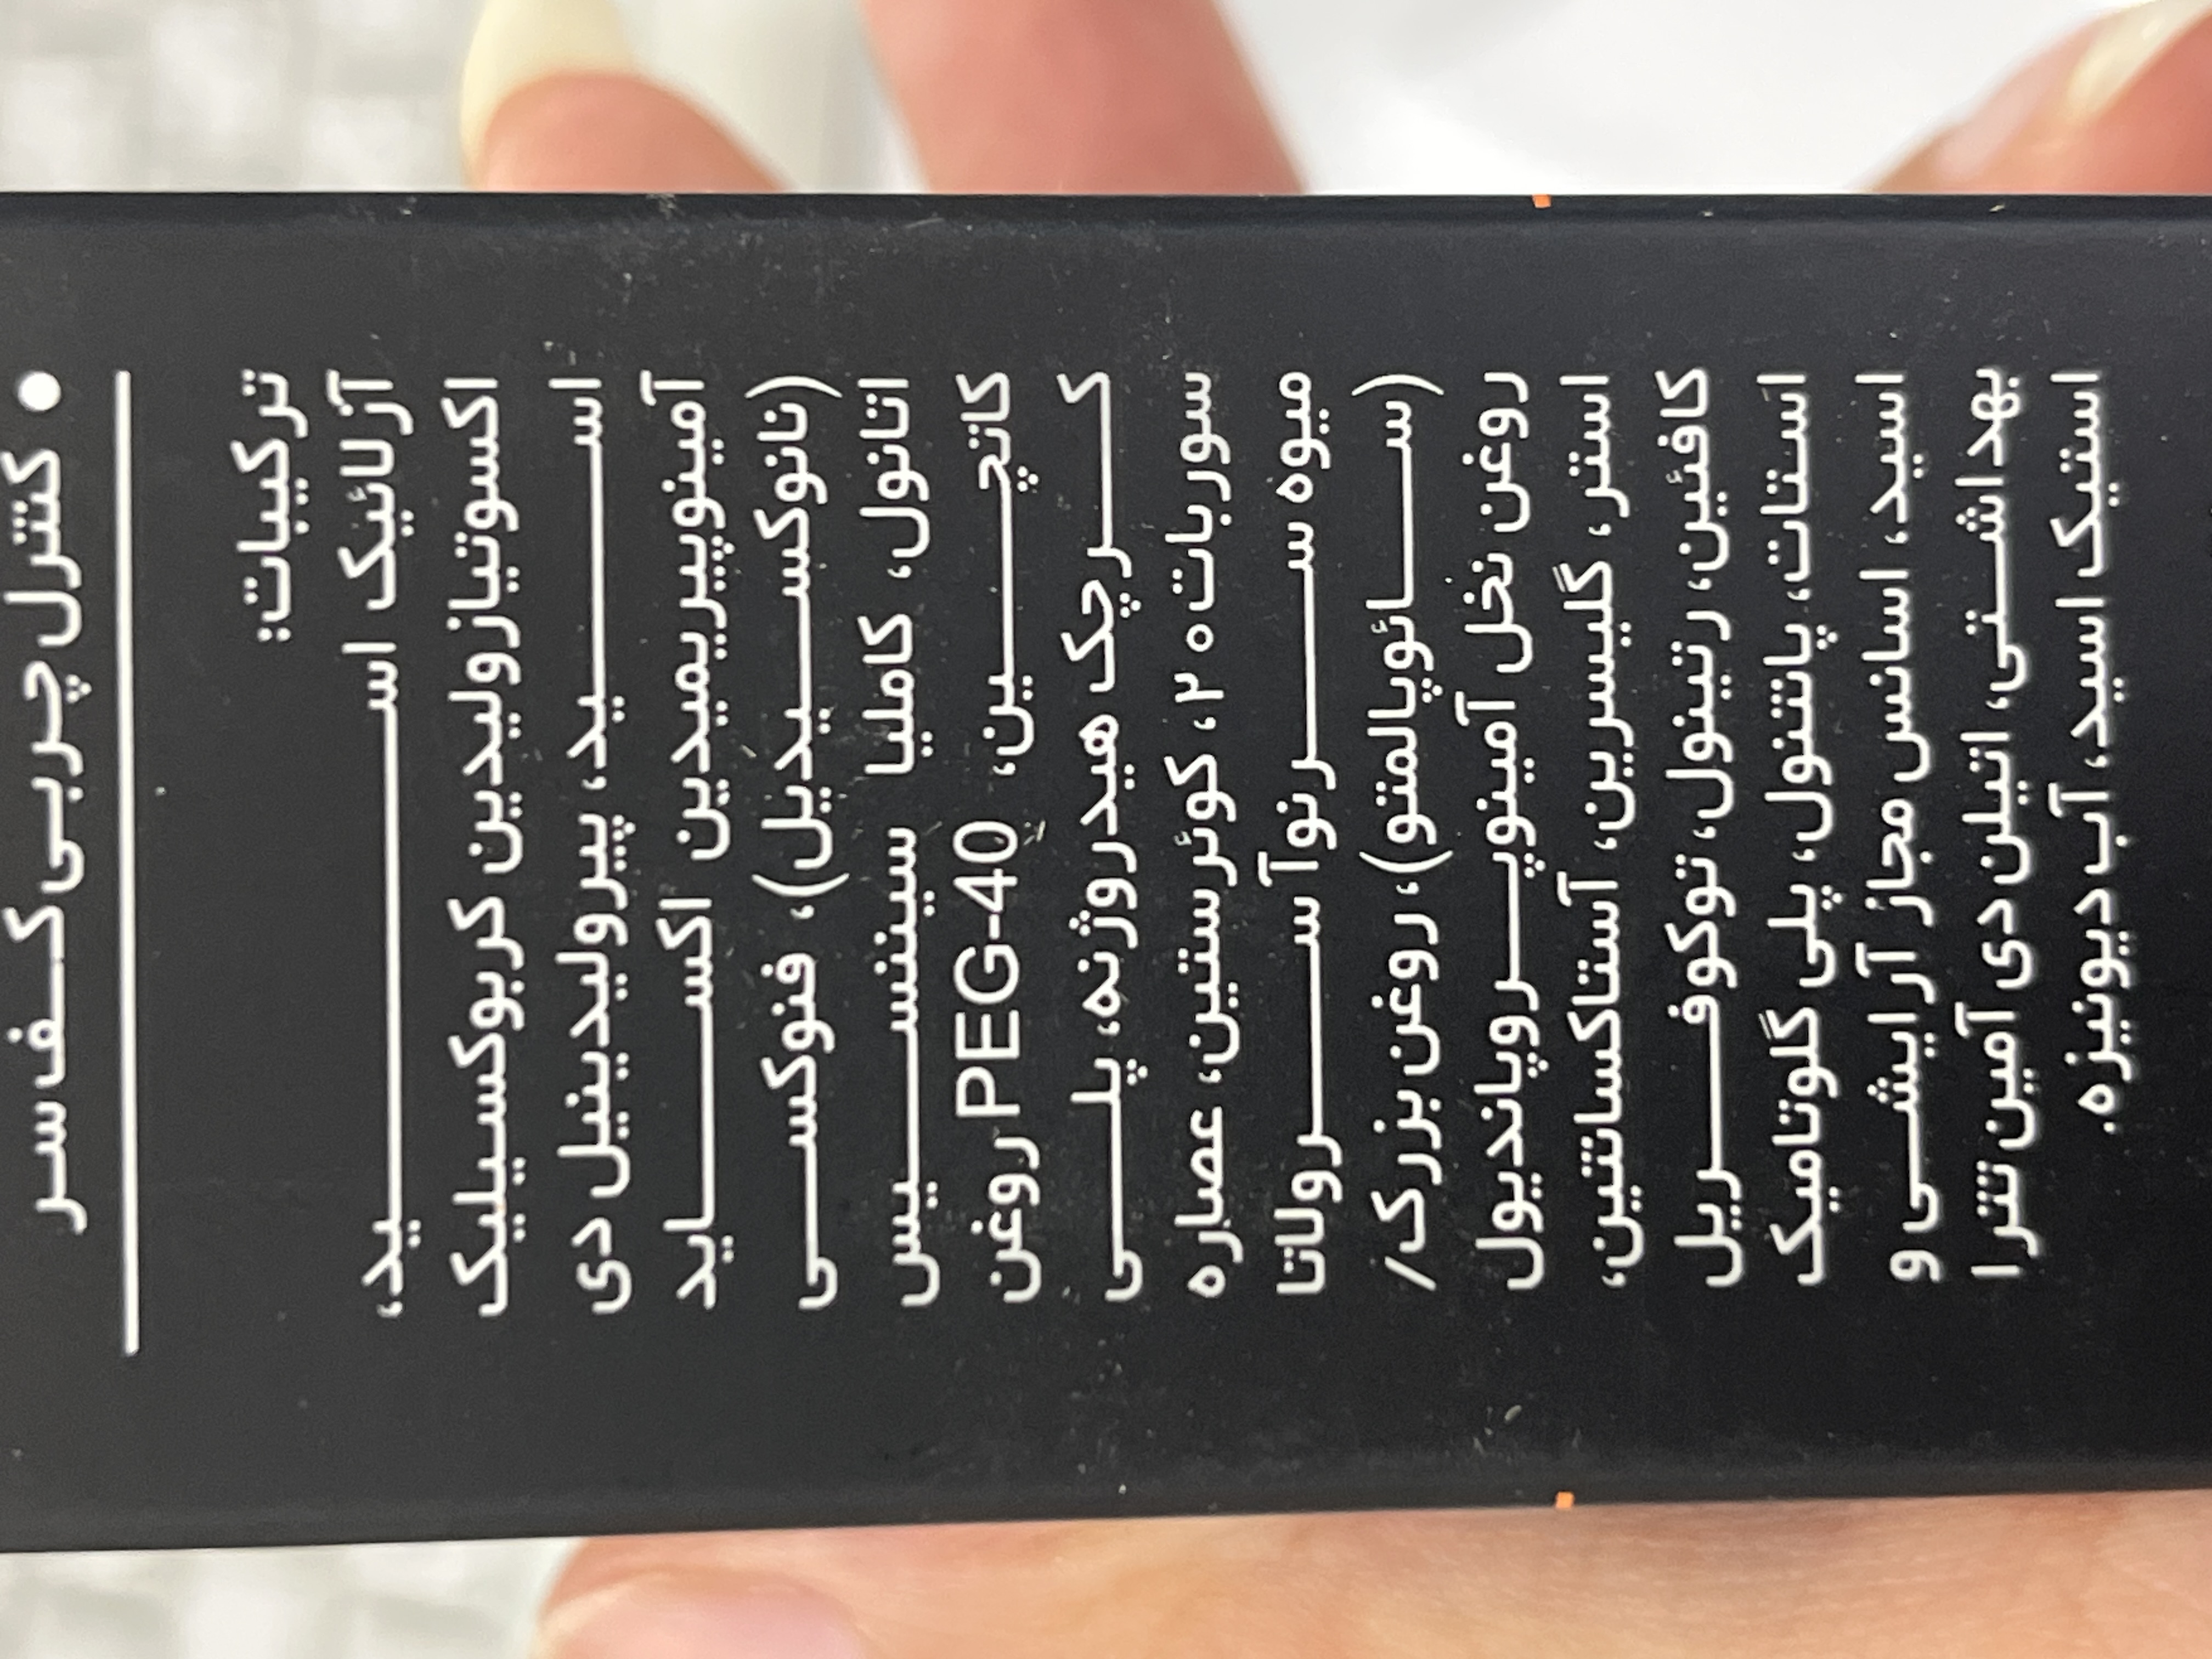 ● کنترل چربی کف سر
ترکیبات:
آزلائیک اسید،
اکسوتیازولیدین کربوکسیلیک
اسید، پیرولیدینیل دی
آمینوپیریمیدین اکساید
(نانوکسیدیل)، فنوکسی
اتانول، کاملیا سیننسیس
کاتچین، PEG-40 روغن
کرچک هیدروژنه، پلی
سوربات ۲۰، کوئرستین، عصاره
میوه سرنوآ سرولاتا
(سائوپالمتو)، روغن بزرک/
روغن نخل آمینوپروپاندیول
استر، گلیسرین، آستاکسانتین،
کافئین، رتینول، توکوفریل
استات، پانتنول، پلی گلوتامیک
اسید، اسانس مجاز آرایشی و
بهداشتی، اتیلن دی آمین تترا
استیک اسید، آب دیونیزه.